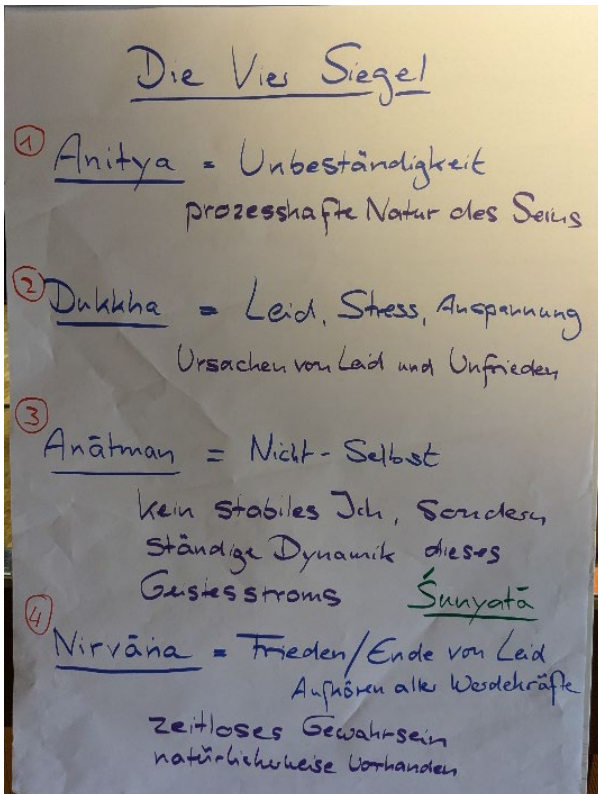 Die Vier Siegel
1 Anitya = Unbeständigkeit
prozesshafte Natur des Seins
2 Dukkha = Leid, Stress, Anspannung
Ursachen von Leid und Unfrieden
3
Anātman = Nicht-Selbst
kein stabiles Ich, sondern
ständige Dynamik dieses
Geistesstroms Śunyatā
4
Nirvāna = Frieden/Ende von Leid
Aufhören aller Werdekräfte
zeitloses Gewahrsein
natürlicherweise vorhanden